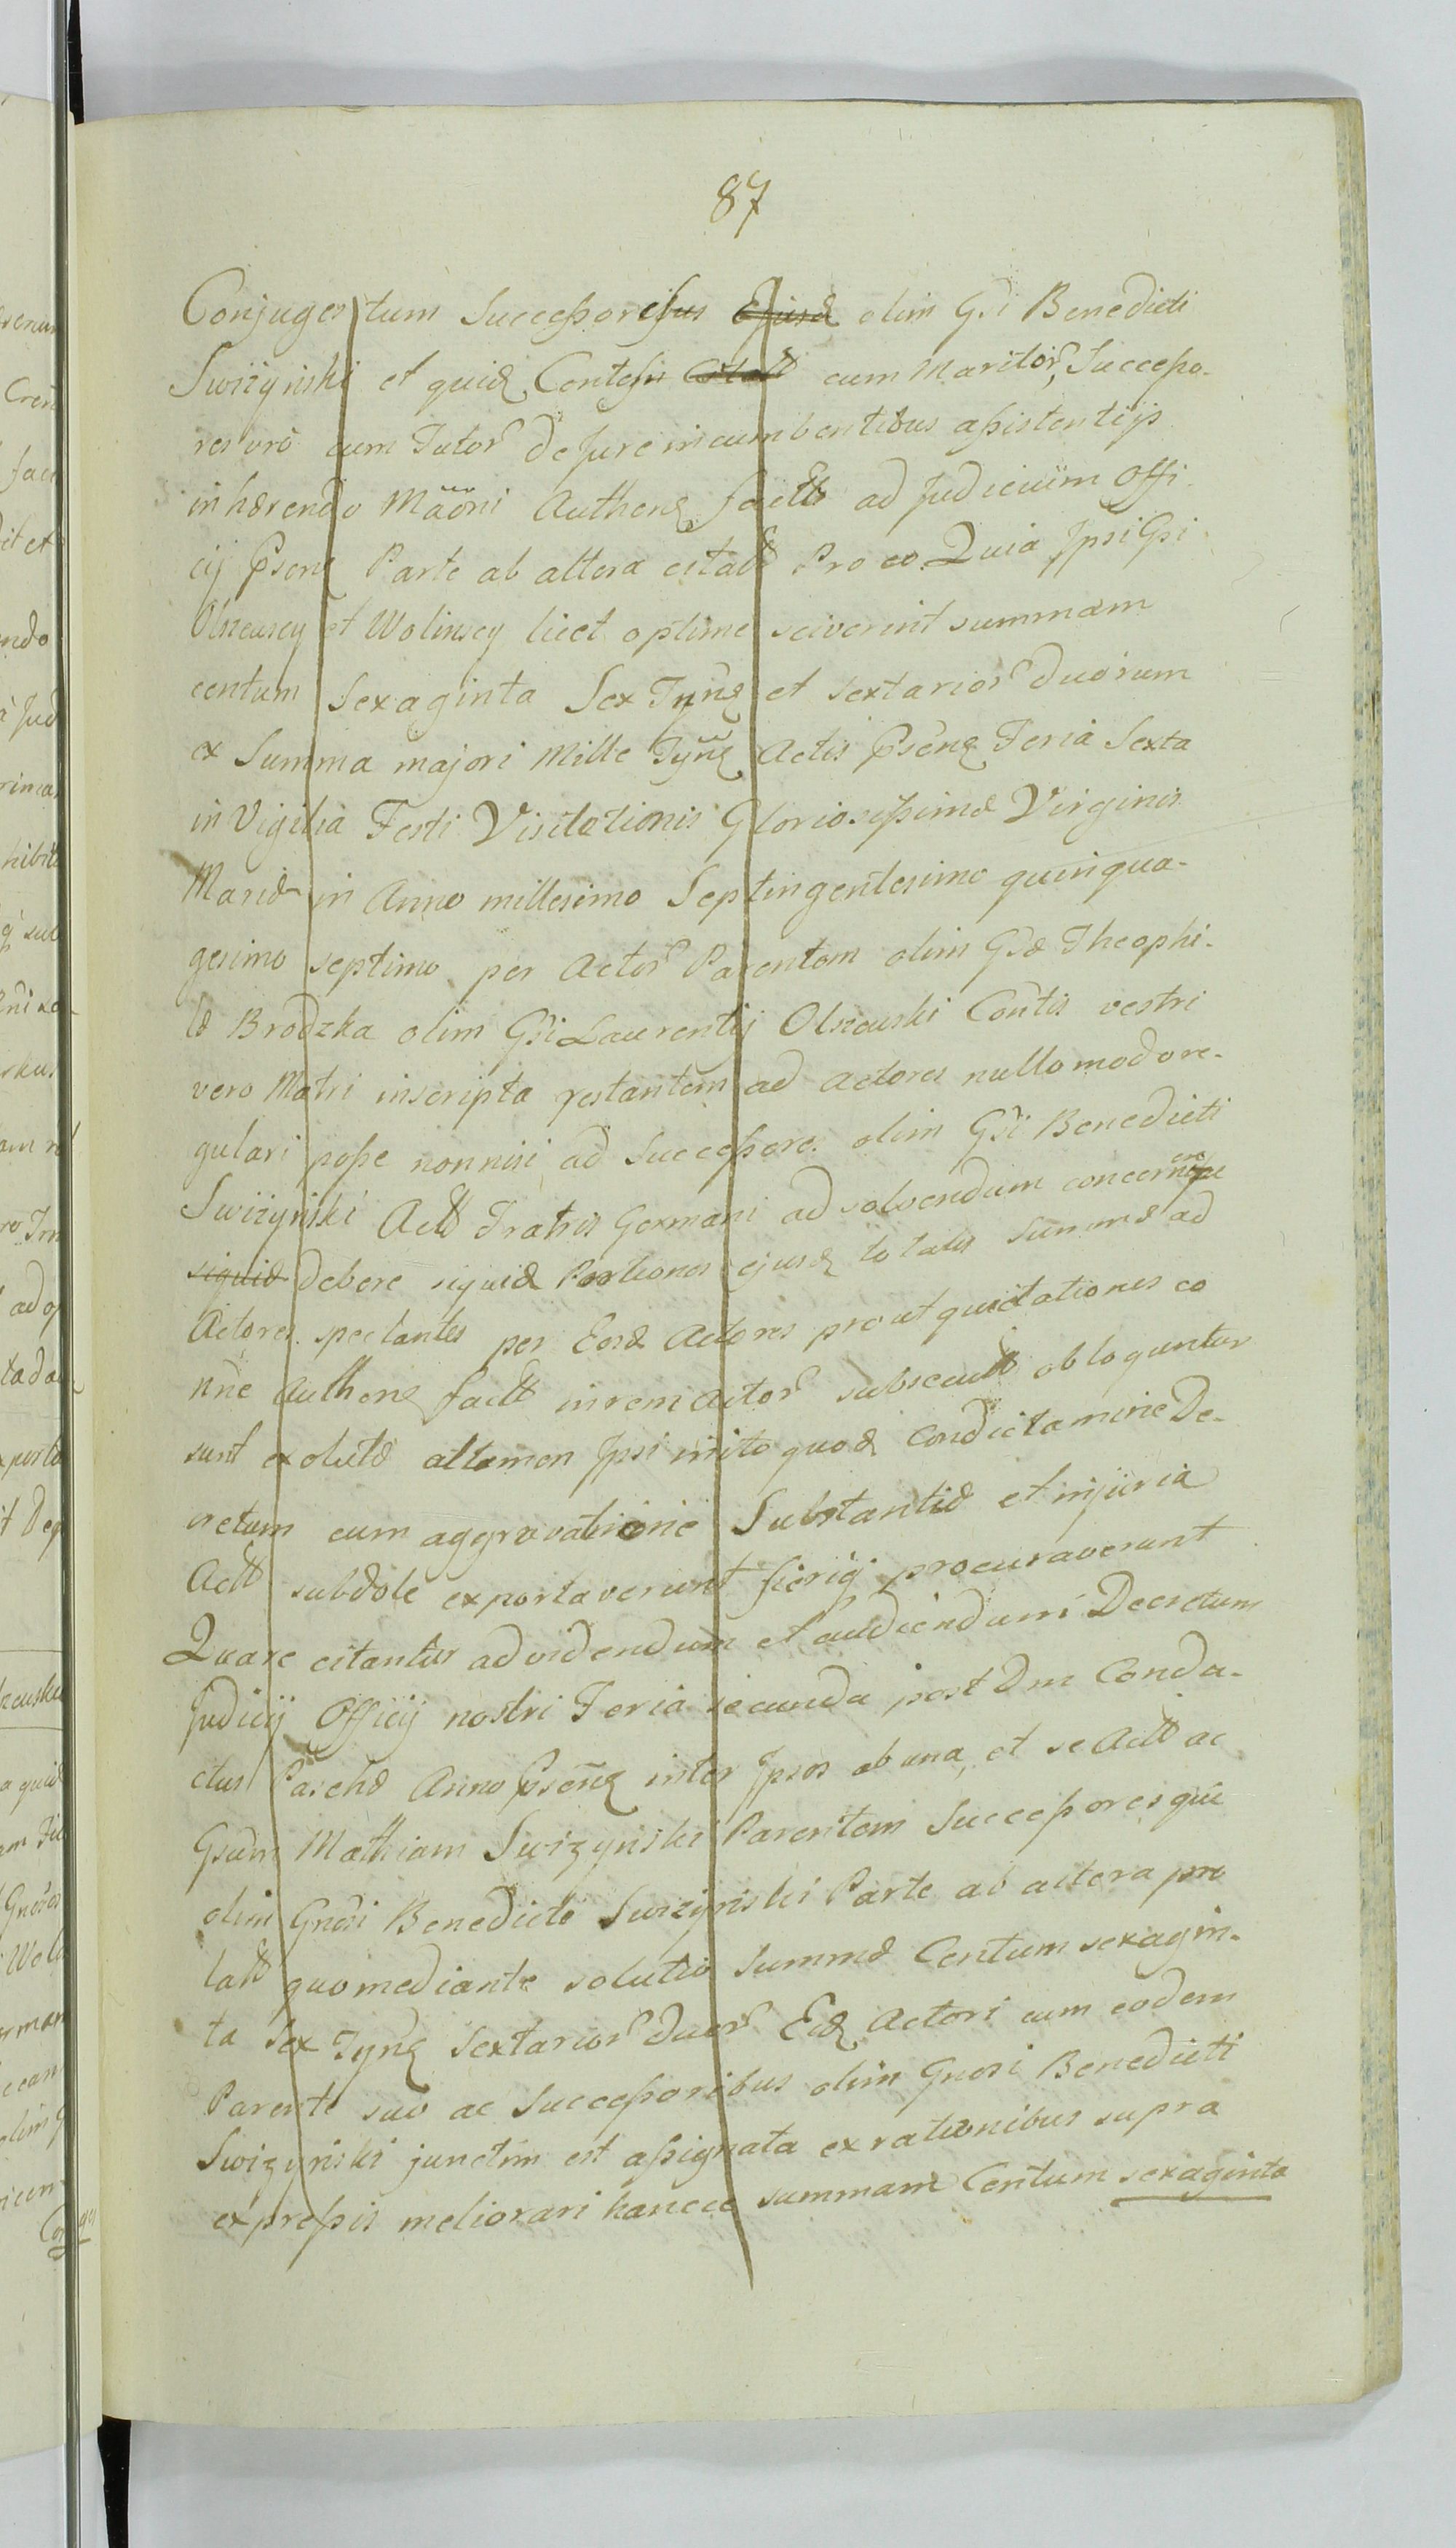 87
Conjuges tum Successoresus Ejusd olim Gsi Benedicti
Swiżyński et quid Contesis Citatt cum Maritor, Successo-
res vrõ cum Tutor de Jure incumbentibus assistentijs
inhærendo Mãõni Autheng factt ad Judicium Offi-
cij Pseng Parte ab altera citatt Pro eo Quia Ipsi Gsi
Olszewscy et Wolinscy licet optime sciverint summam
centum Sexaginta Sex Tynf et sextarior duorum
ex Summa majori Mille Tynf Actis Pseng Feria Sexta
in Vigilia Festi Visitationis Gloriosissimæ Virginis
Mariæ in Anno millesimo Septingentesimo quinqua-
gesimo septimo per Actor Parentem olim Gsæ Theophi-
læ Brodzka olim Gsi Laurentij Olszewski Contis vestri
vero Matri inscripta restantem ad Actores nullo modo re-
gulari posse non nisi ad Successores olim Gsi Benedicti
Swiżyński Actt Fratris Germani ad solvendum concernere
siquid debere siquid Portiones ejusd totalis Summæ ad
Actores spectantes per Eosd Actores prout quietationes eo
nñe Autheng factt in rem Actor subsecutt obloquntur
sunt exolutæ attamen Ipsi inito quod condictamine De-
cretum cum aggravatione Substantiæ et injuria
Actt subdole exportaverunt fieriq procuraverunt
Quare citantur ad videndum et audiendum Decretum
Judicij Officij nostri Feria secunda post Dm Condu-
ctus Paschæ Anno Pseng inter Ipsos ab una, et se Actt ac
Gsum Mathiam Swizyński Parentem Successoresque
olim Gnosi Benedicti Swizyński Parte ab altera pro
latt quo mediante solutio Summæ Centum sexagin-
ta Sex Tynf Sextarior duor Eid Actori cum eodem
Parente suo ac Successoribus olim Gnosi Benedicti
Swizyński junctim est assignata ex rationibus supra
expressis meliorari hancce summam Centum sexaginta